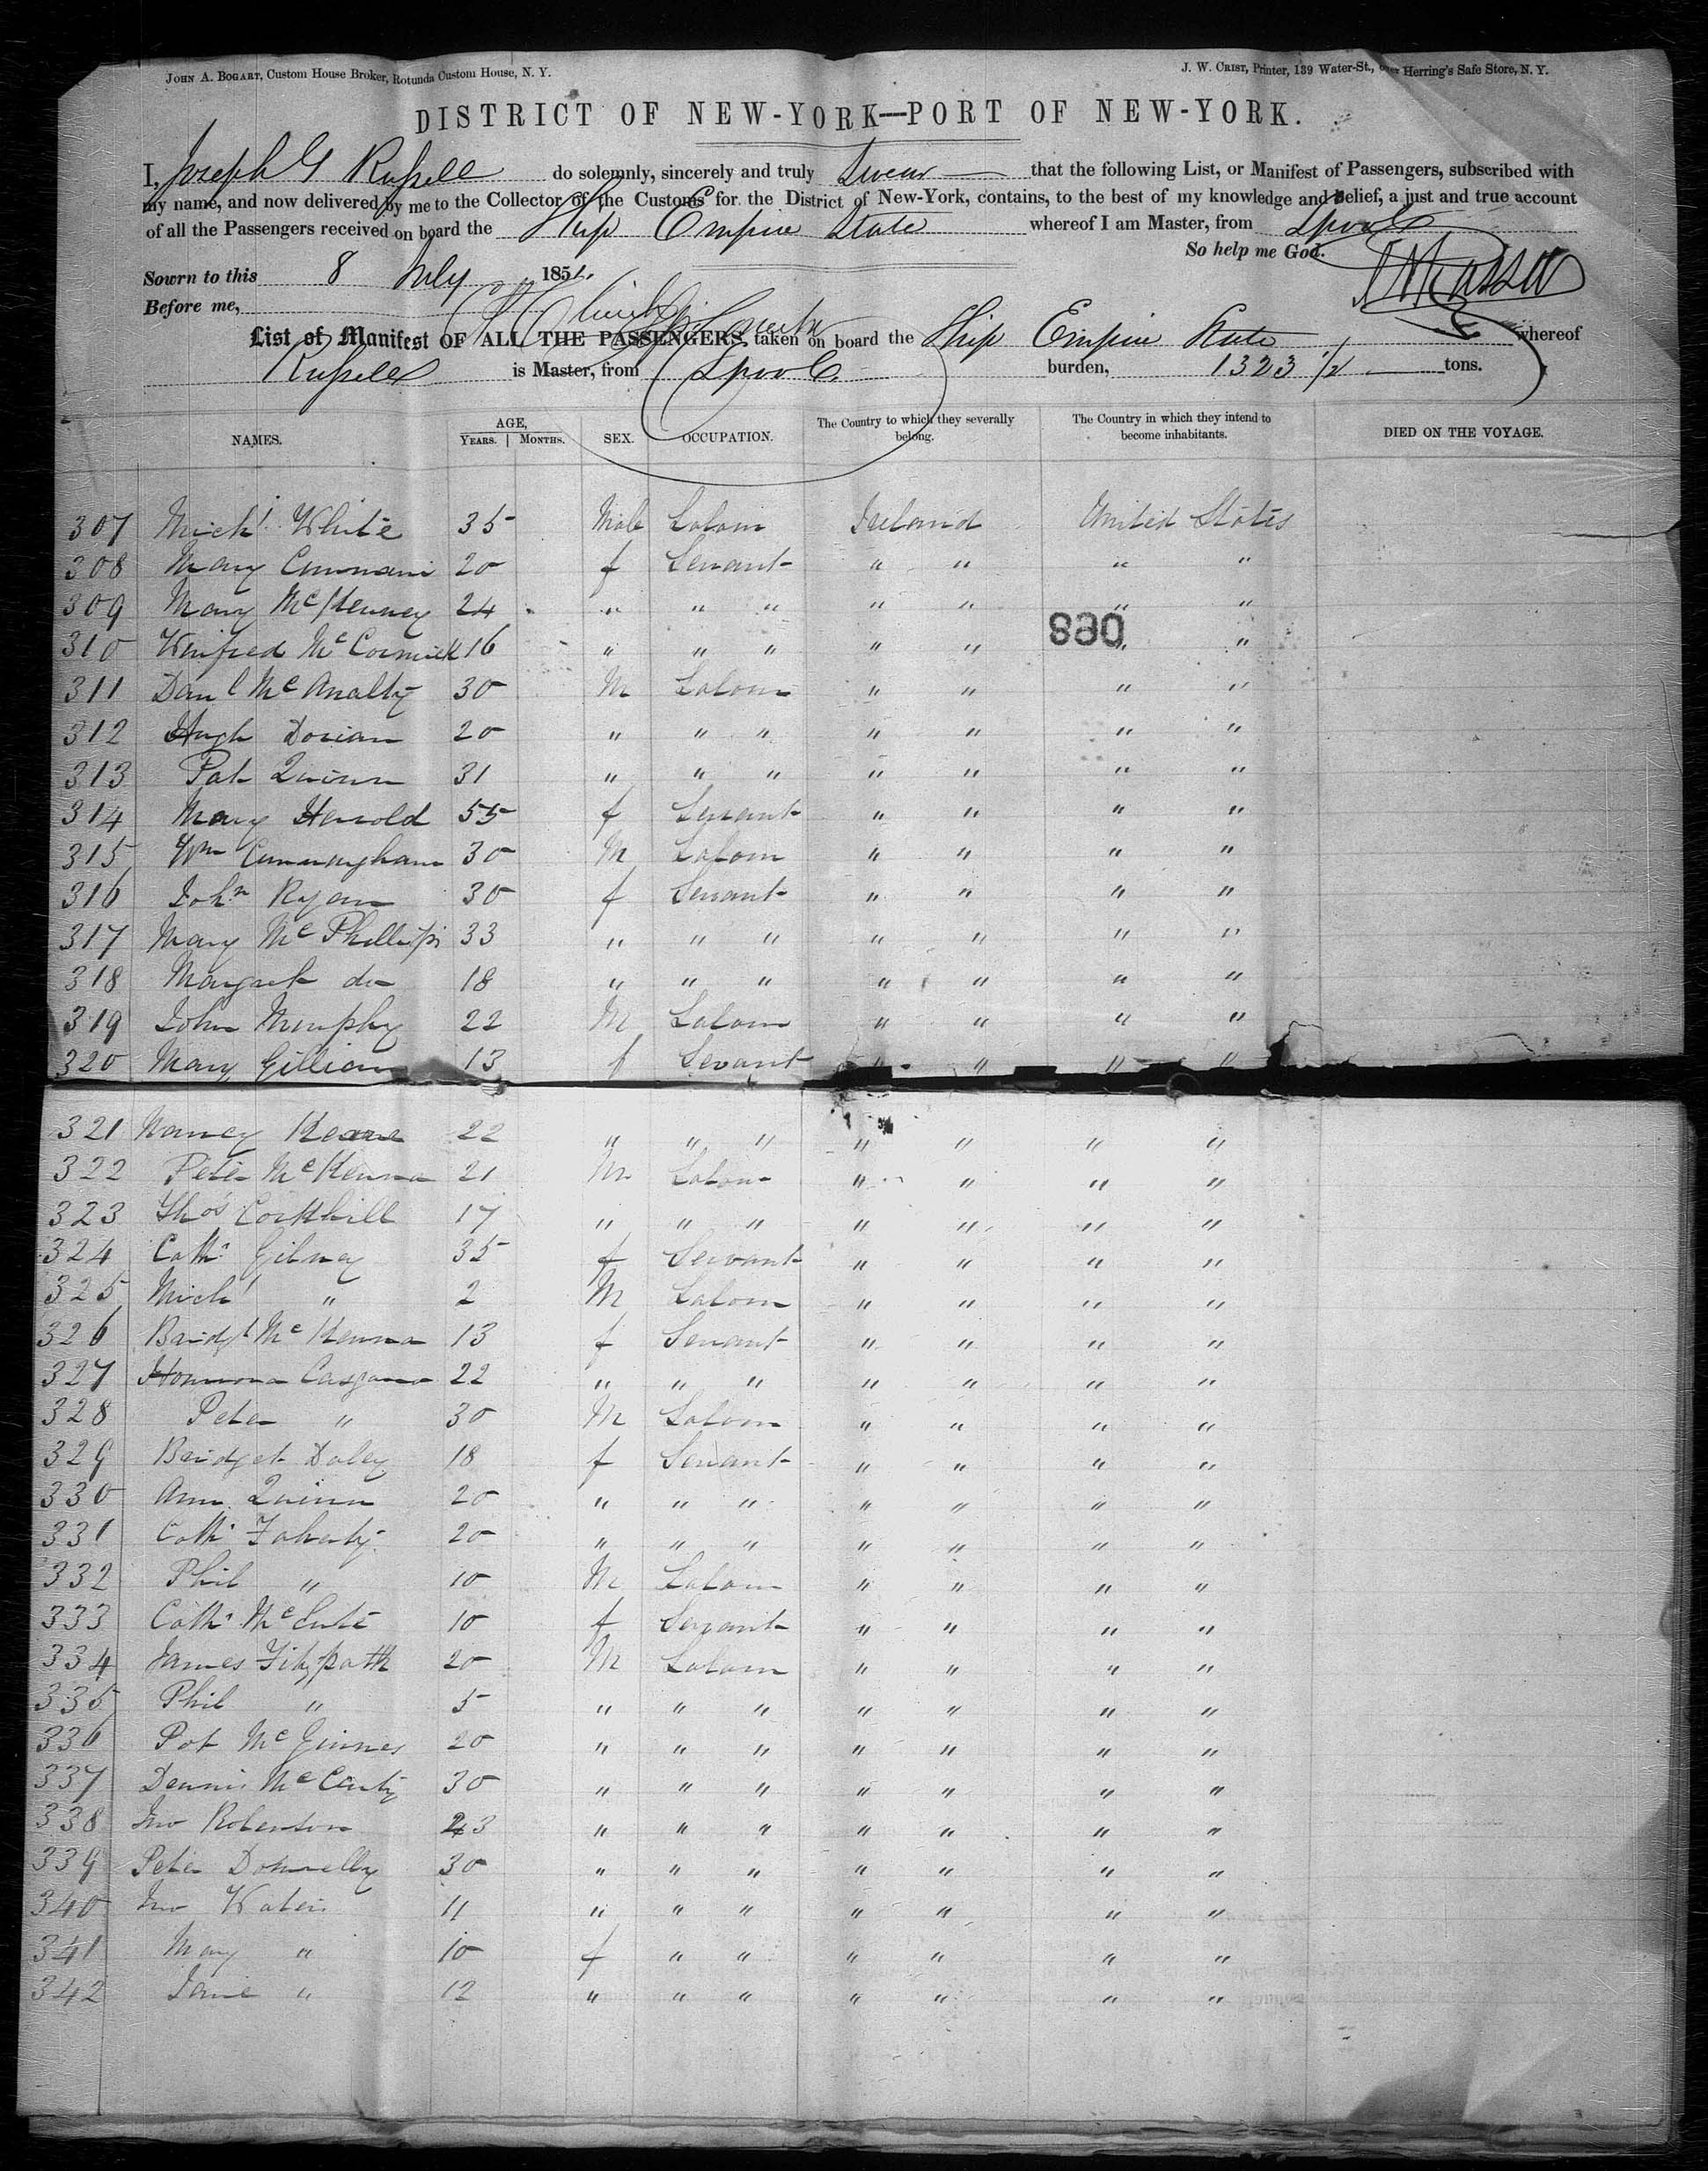 JOHN A. BOGART, Custom House Broker, Rotunda Custom House, N. Y.
J. W. CRIST, Printer, 139 Water-St., over Herring's Safe Store, N. Y.
DISTRICT OF NEW-YORK—PORT OF NEW-YORK.
I, Joseph G Russell do solemnly, sincerely and truly swear that the following List, or Manifest of Passengers, subscribed with
my name, and now delivered by me to the Collector of the Customs for the District of New-York, contains, to the best of my knowledge and belief, a just and true account
of all the Passengers received on board the Ship Empire State whereof I am Master, from Lpool
So help me God.
Sowrn to this 8 July 1851.
Before me,
List of Manifest OF ALL THE PASSENGERS taken on board the Ship Empire State whereof
Russell is Master, from Lpool burden, 1323 1/2 tons.
NAMES. AGE, YEARS. MONTHS. SEX. OCCUPATION. The Country to which they severally belong. The Country in which they intend to become inhabitants. DIED ON THE VOYAGE.
307 Michl White 35 Male Labour Ireland United States
308 Mary 20 f Servant " " " "
309 Mary McKenney 24 " " " " " " "
090
310 Winifred McCormick 16 " " " " " " "
311 Danl McAnalty 30 M Labour " " " "
312 Hugh Dorian 20 " " " " " " "
313 Pat Quinn 31 " " " " " " "
314 Mary Herrold 55 f Servant " " " "
315 Wm Cunnaygham 30 M Labour " " " "
316 John Ryan 30 f Servant " " " "
317 Mary McPhillips 33 " " " " " " "
318 Margaret do 18 " " " " " " "
319 John Murphy 22 M Labour " " " "
320 Mary Gillian 13 f Servant " " " "
321 Nancy Keane 22 " " " " " " "
322 Peter McKenna 21 M Labour " " " "
323 Thos Corkhill 17 " " " " " " "
324 Cath Gilney 35 f Servant " " " "
325 Michl " 2 M Labour " " " "
326 Bridgt McKenna 13 f Servant " " " "
327 22 " " " " " " "
328 Peter " 30 M Labour " " " "
329 Bridget Daley 18 f Servant " " " "
330 Ann Quinn 20 " " " " " " "
331 Cath Faherty 20 " " " " " " "
332 Phil " 10 M Labour " " " "
333 Cath 10 f Servant " " " "
334 James Fitzpatk 20 M Labour " " " "
335 Phil " 5 " " " " " " "
336 Pat McGinnes 20 " " " " " " "
337 Dennis McCarty 30 " " " " " " "
338 Jno Roberston 23 " " " " " " "
339 Peter Donnelly 30 " " " " " " "
340 Jno Waters 11 " " " " " " "
341 Mary " 10 f " " " " " "
342 Jane " 12 " " " " " " "